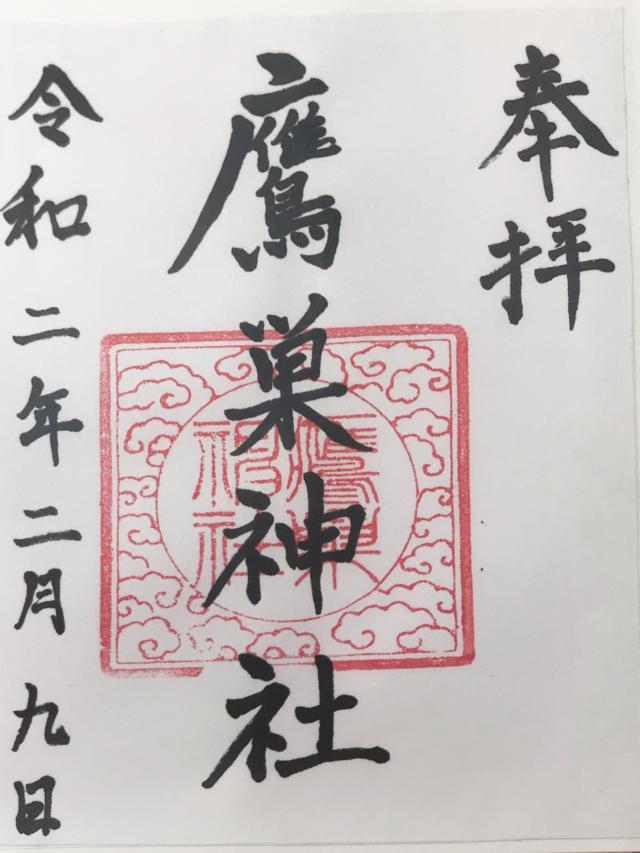 奉拝
鷹巣神社
令和二年二月九日
鷹巣
神社